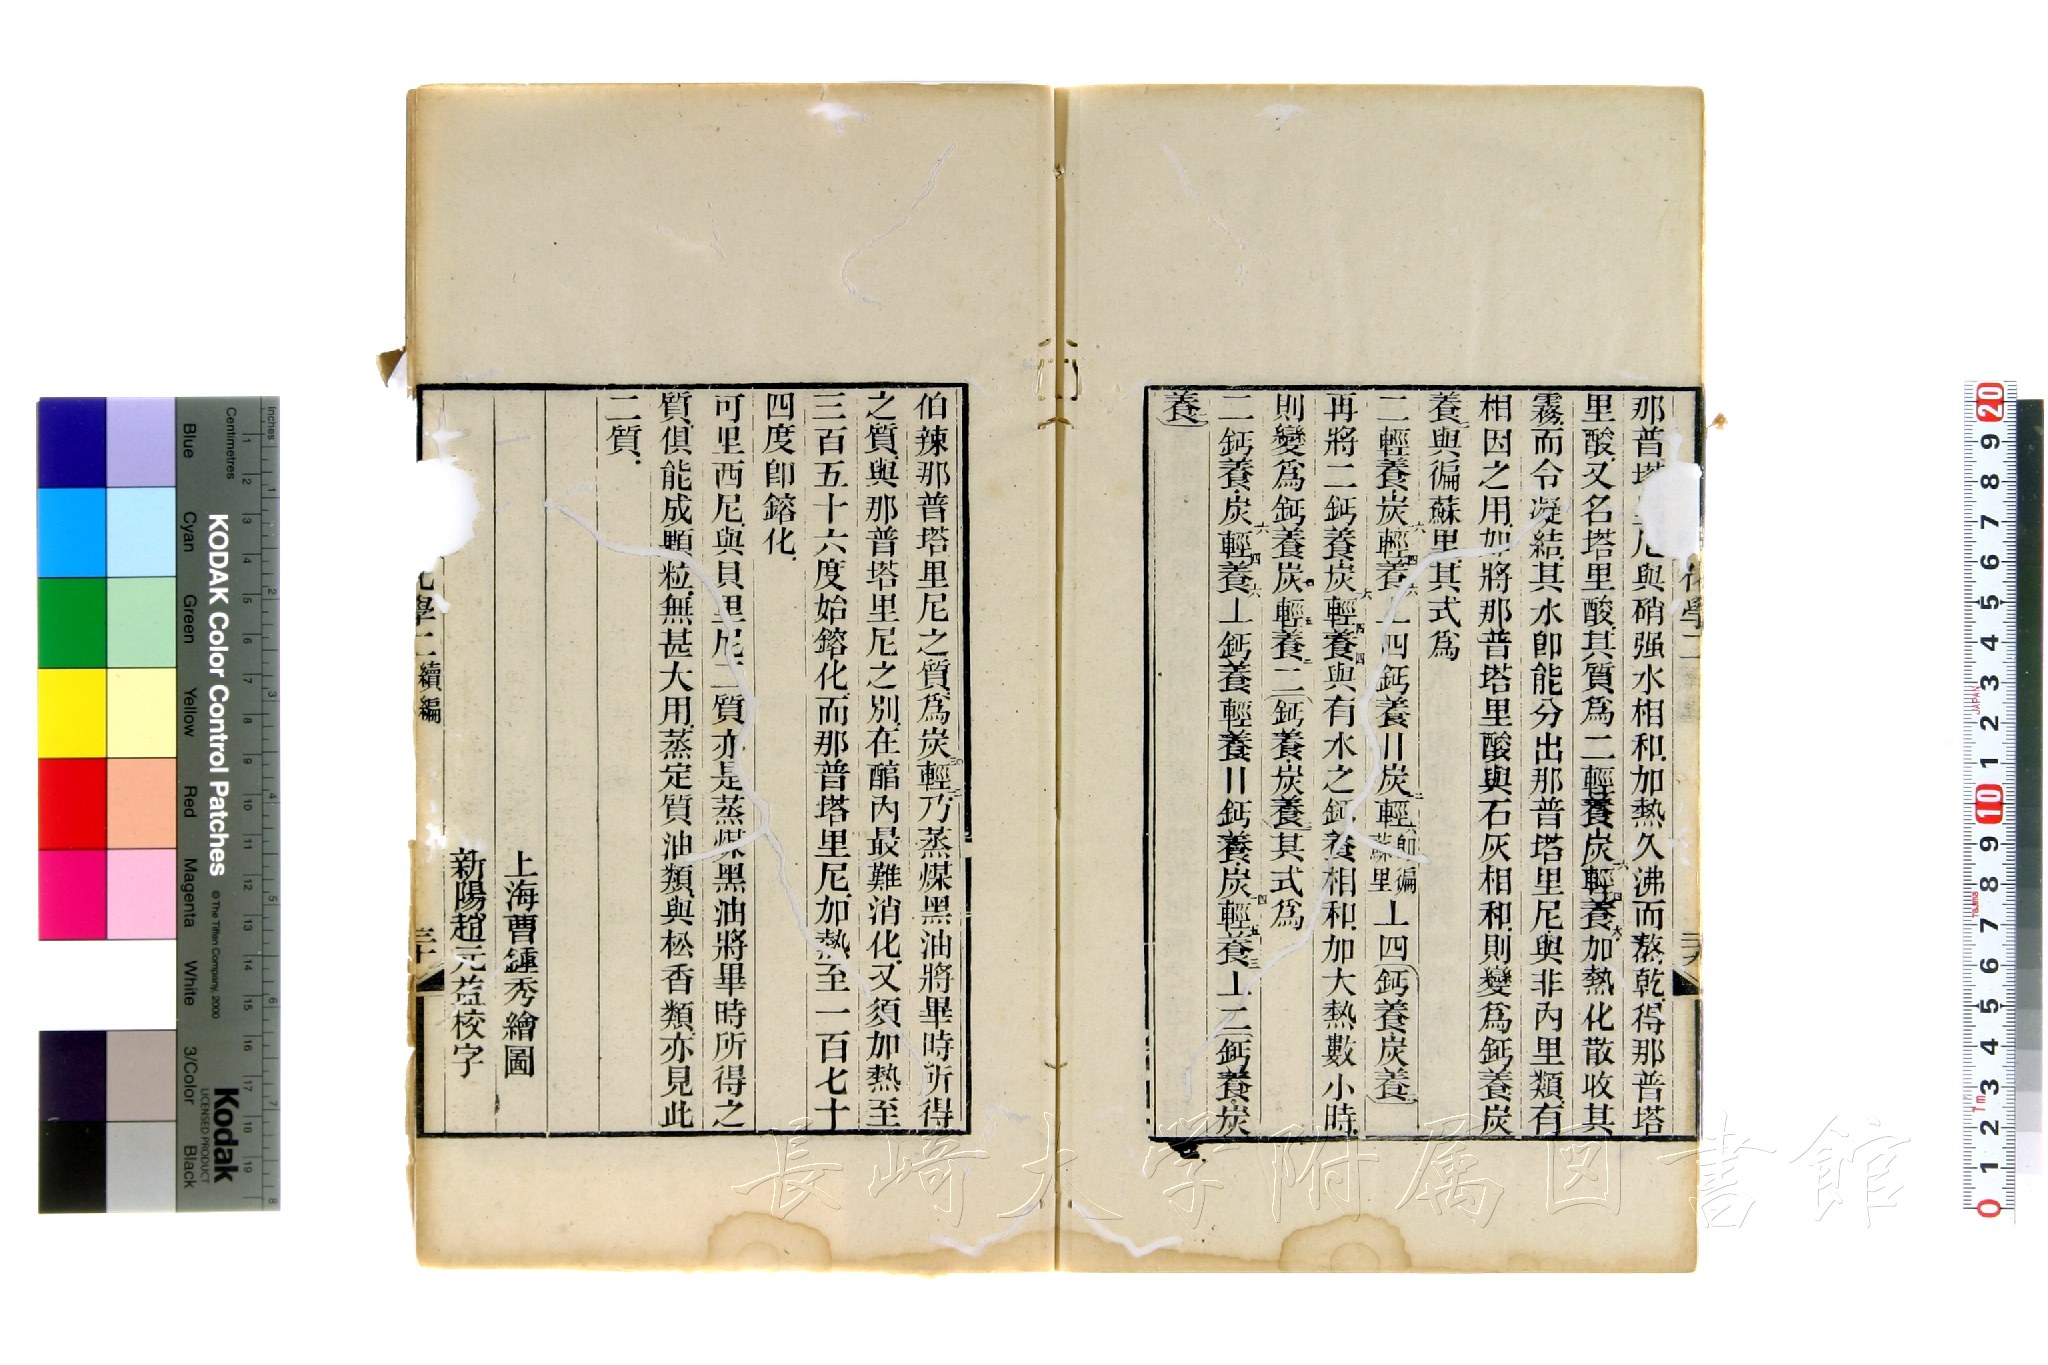 那普塔里尼與硝强水相和加熱久沸而熬乾得那普塔
里酸又名塔里酸其質爲二輕養炭六輕四養六加熱化散收其
霧而令凝結其水卽能分出那普塔里尼與非內里類有
相因之用如將那普塔里酸與石灰相和則變爲鈣養炭
養與徧蘇里其式爲
二輕養炭六輕四養六⊥四鈣養〢炭三輕六卽徧蘇里⊥四(鈣養炭養)
再將二鈣養炭六輕四養四與有水之鈣養相和加大熱數小時
則變爲鈣養炭輕五養三二(鈣養炭養)其式爲
二鈣養炭六輕四養六⊥鈣養輕養〢鈣養炭四輕五養三⊥二(鈣養炭
養)
化學二
二十九
伯辣那普塔里尼之質爲炭三〇輕三乃蒸煤黑油將畢時所得
之質與那普塔里尼之別在館內最難消化又須加熱至
三百五十六度始鎔化而那普塔里尼加熱至一百七十
四度卽鎔化
可里西尼與貝里尼二質亦是蒸煤黑油將畢時所得之
質俱能成顆粒無甚大用蒸定質油類與松香類亦見此
二質
上海曹鍾秀繪圖
新陽趙元益校字
化學二續編
三十
KODAK Color Control Patches
© The Tiffen Company, 2000
Kodak
LICENSED PRODUCT
Inches
Centimetres
Blue
Cyan
Green
Yellow
Red
Magenta
White
3/Color
Black
長崎大学附属図書館